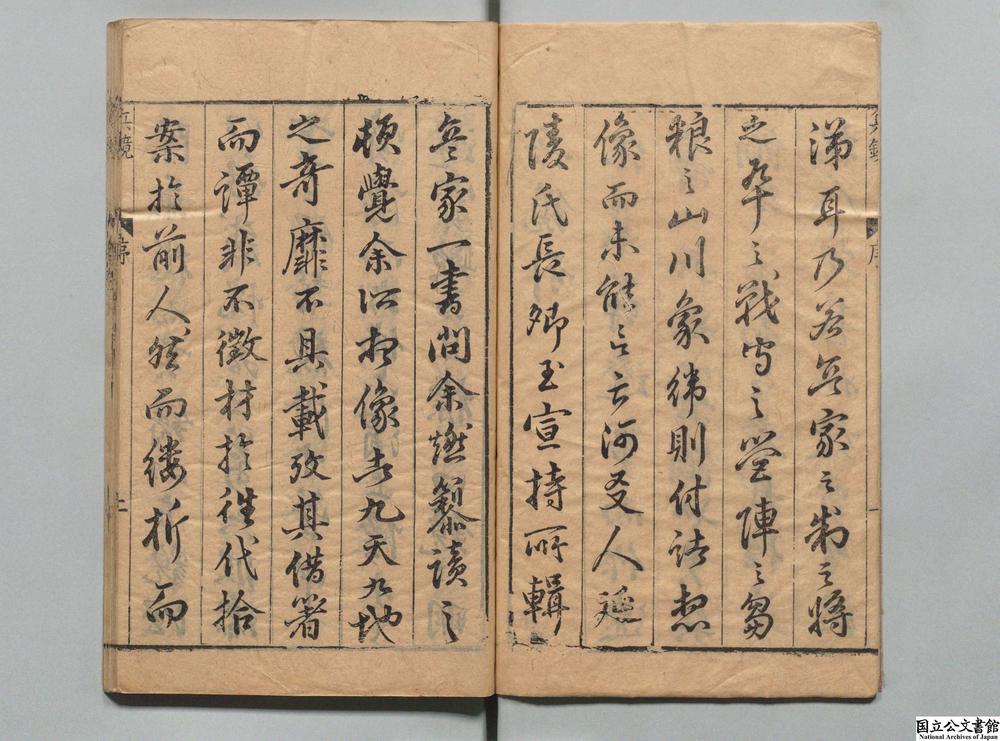 涕耳乃若兵家之制之將
之卒之戰守之營陣之芻
粮之山川象緯則付諸想
像而未能亡言河叉人延
陵氏長卿玉宣持所輯
兵家一書問余燃藜讀之
頓覺余所想像者九天九地
之奇靡不具載攷其借箸
而譚非不徵材於往代拾
案於前人然而縷析而
兵鏡
序
国立公文書館
National Archives of Japan